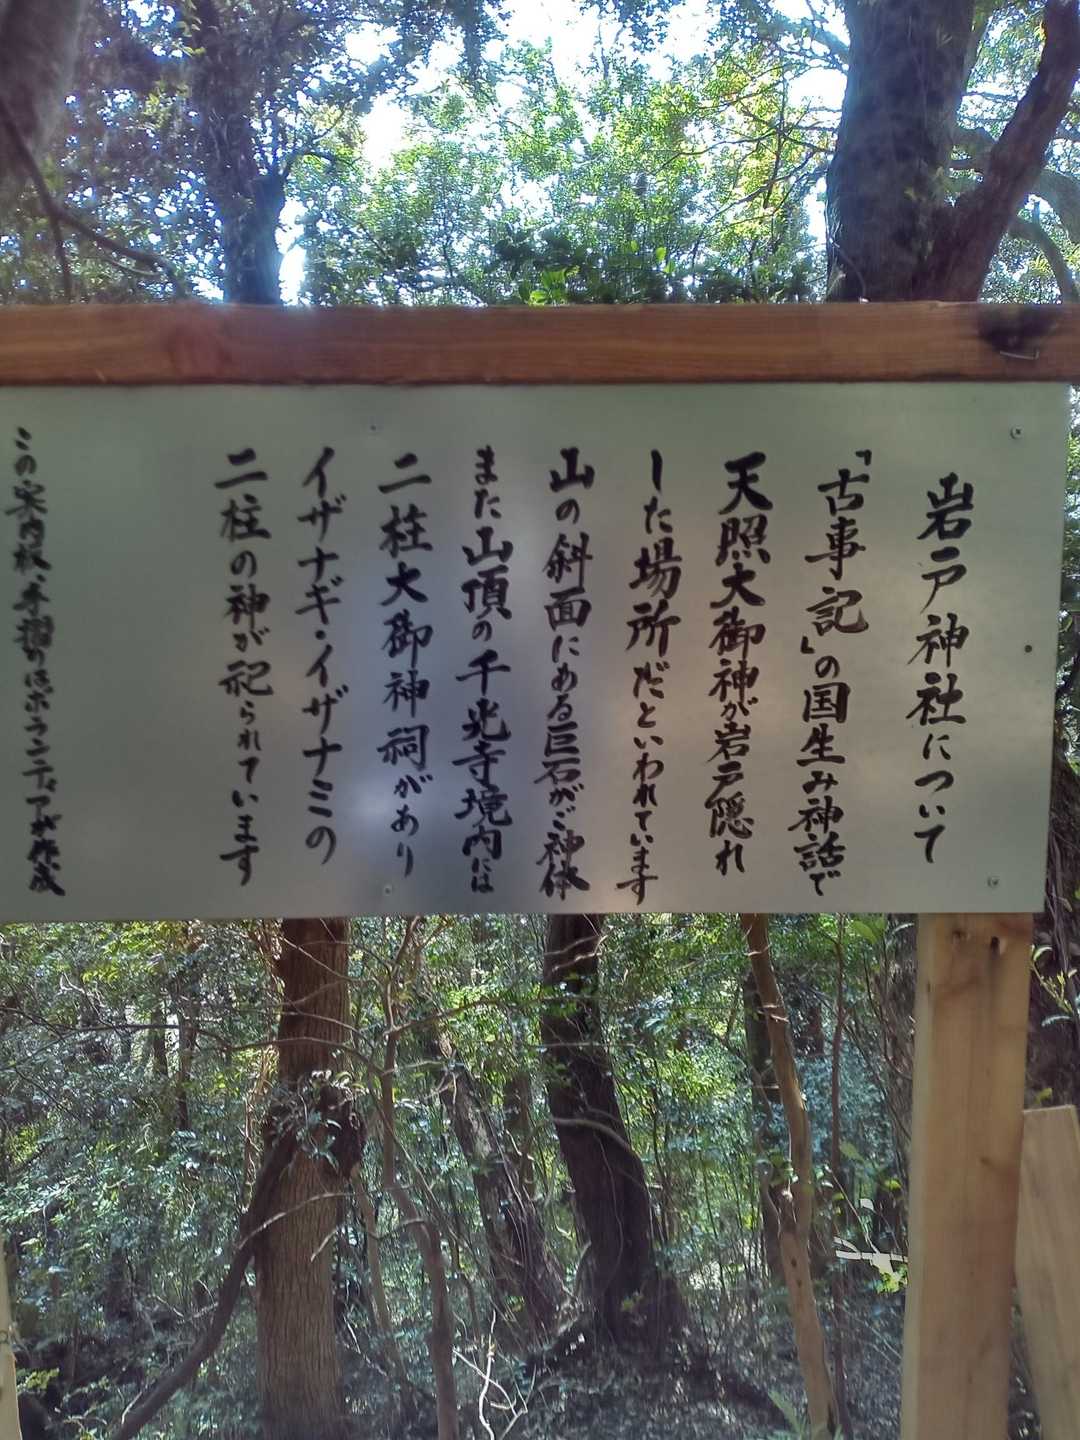 岩戸神社について
「古事記」の国生み神話で
天照大御神が岩戸隠れ
した場所だといわれています
山の斜面にある巨石がご神体
また山頂の千光寺境内には
二柱大御神祠があり
イザナギ・イザナミの
二柱の神が祀られています
この案内板、手摺りはボランティアが作成